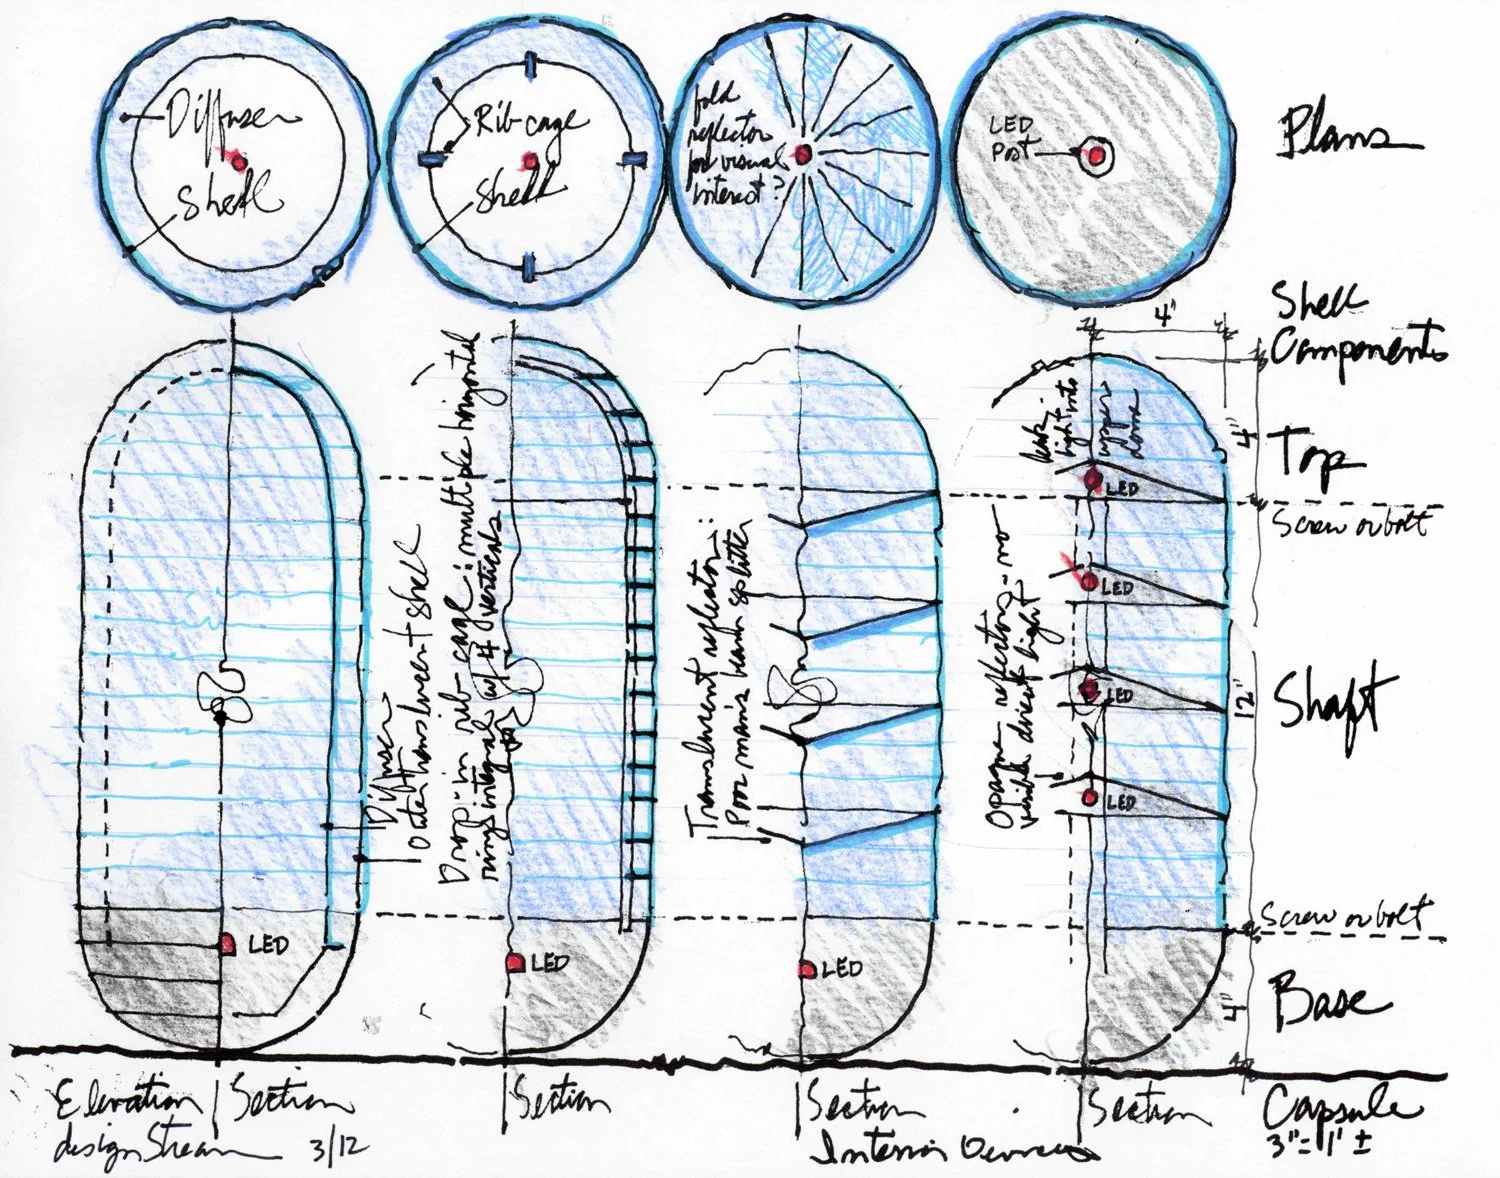 Diffuser
Shell
Rib-cage
Shell
fold
reflector
for visual
interest?
LED
Post
Plans
Shell
Components
4"
4"
Top
Screw or bolt
12"
Shaft
Screw or bolt
4"
Base
Diffuser
Outer translucent shell
Drop in rib-cage: multiple horizontal
rings integral w/ 4 verticals
Translucent reflector:
Poor man's beam splitter
Opaque reflectors - no
visible direct light
leak
light into
upper
dome
LED
LED
LED
LED
LED
LED
LED
Elevation
Section
Section
Section
Section
Capsule
3"=1' ±
designStream 3/12
Interior Devices